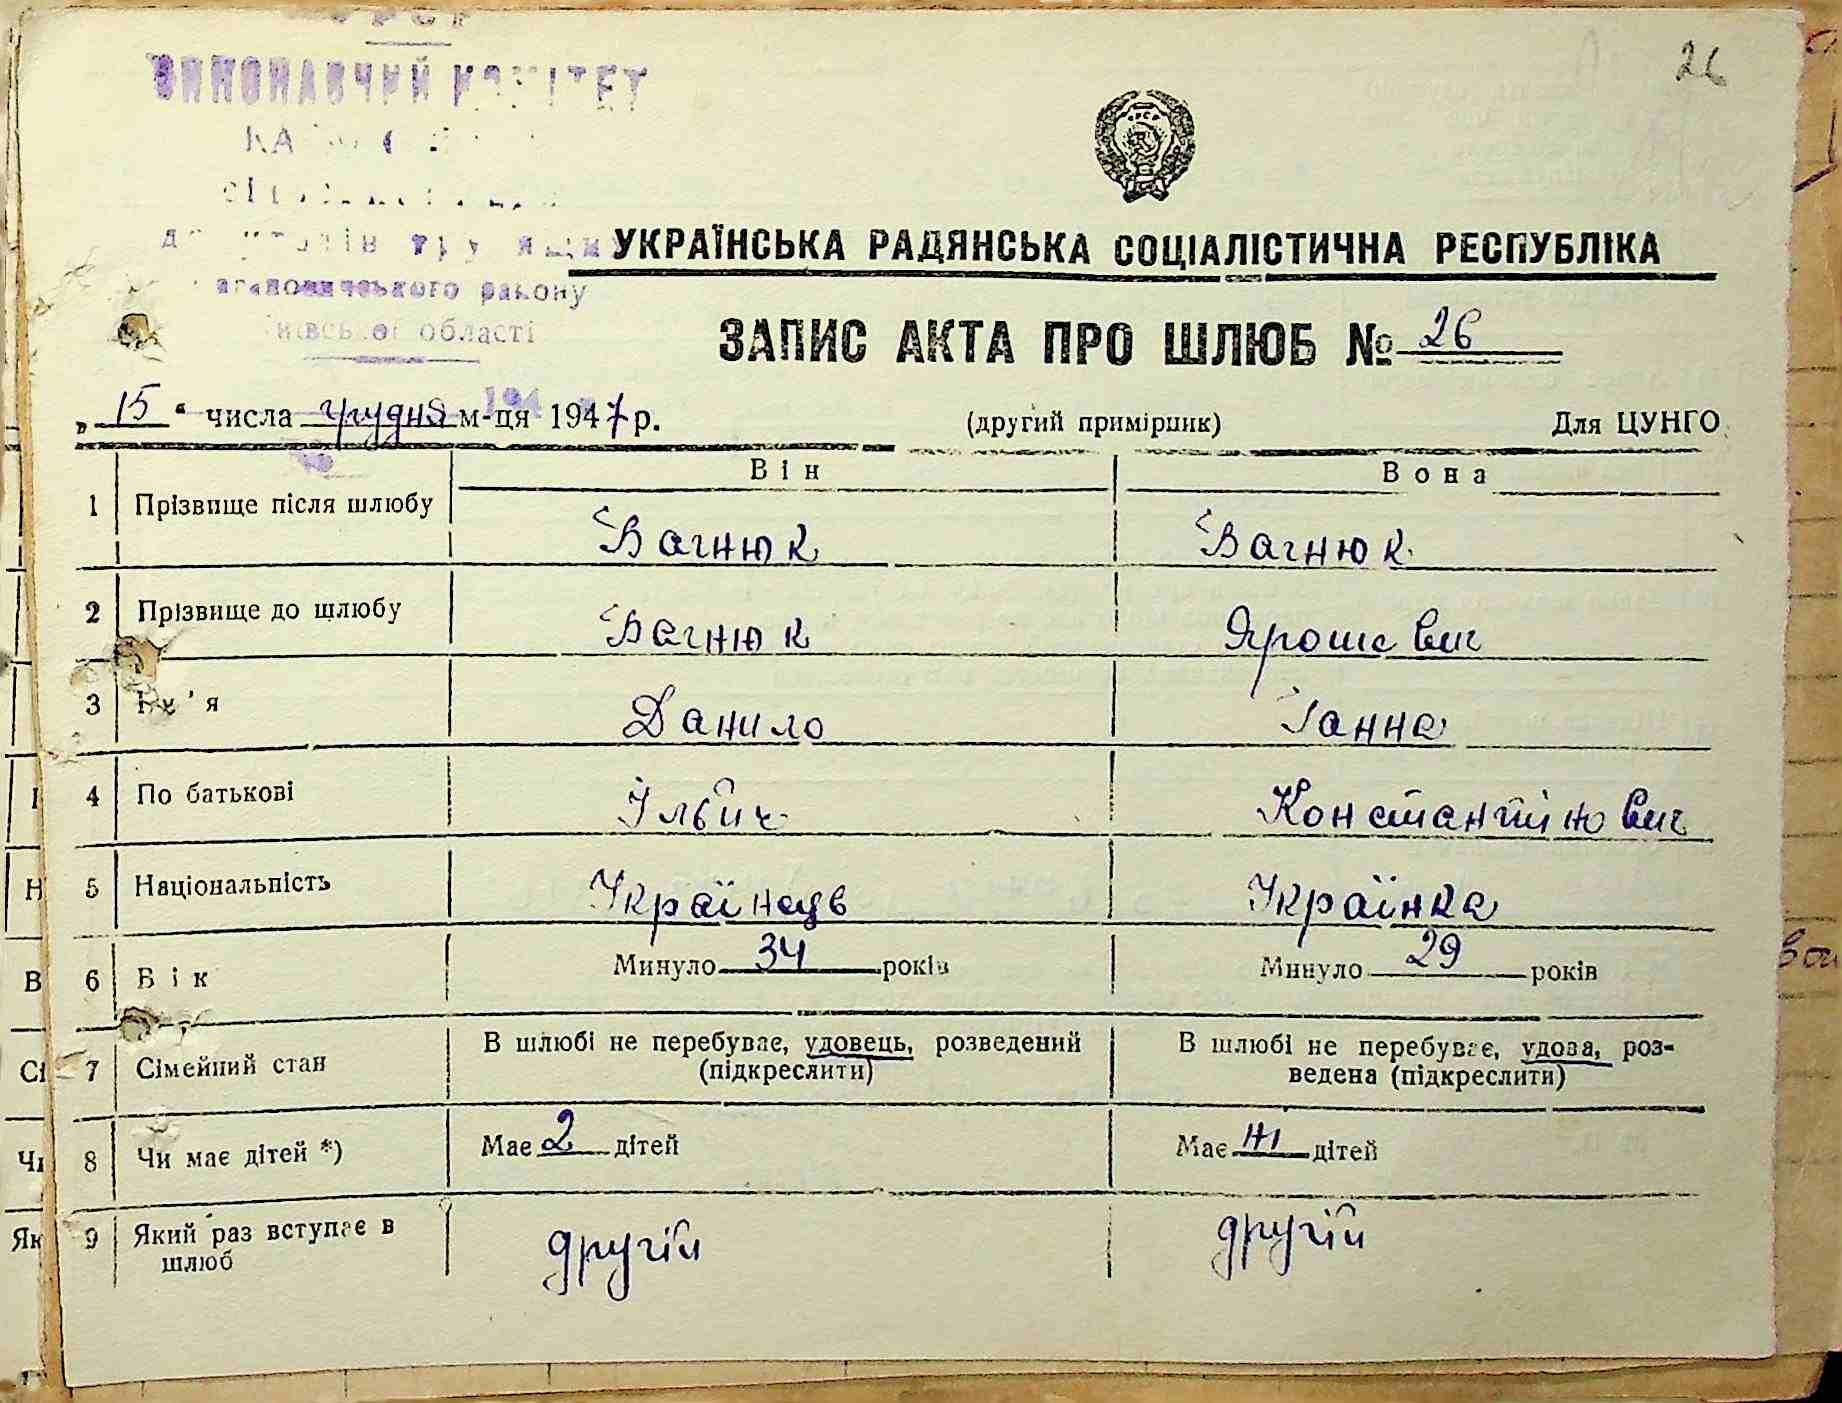 26
ВИКОНАВЧИЙ КОМІТЕТ
УКРАЇНСЬКА РАДЯНСЬКА СОЦІАЛІСТИЧНА РЕСПУБЛІКА
району
області
ЗАПИС АКТА ПРО ШЛЮБ № 26
„15“ числа грудня м-ця 1947 р. (другий примірник) Для ЦУНГО
Він Вона
1 Прізвище після шлюбу Вагнюк Вагнюк
2 Прізвище до шлюбу Вагнюк Ярошевич
3 Ім'я Данило Ганна
4 По батькові Ільвич Константінович
5 Національність Українець Українка
6 Вік Минуло 34 років Минуло 29 років
7 Сімейний стан В шлюбі не перебуває, удовець, розведений (підкреслити) В шлюбі не перебуває, удова, роз-
ведена (підкреслити)
8 Чи має дітей *) Має 2 дітей Має ні дітей
9 Який раз вступає в шлюб другій другій